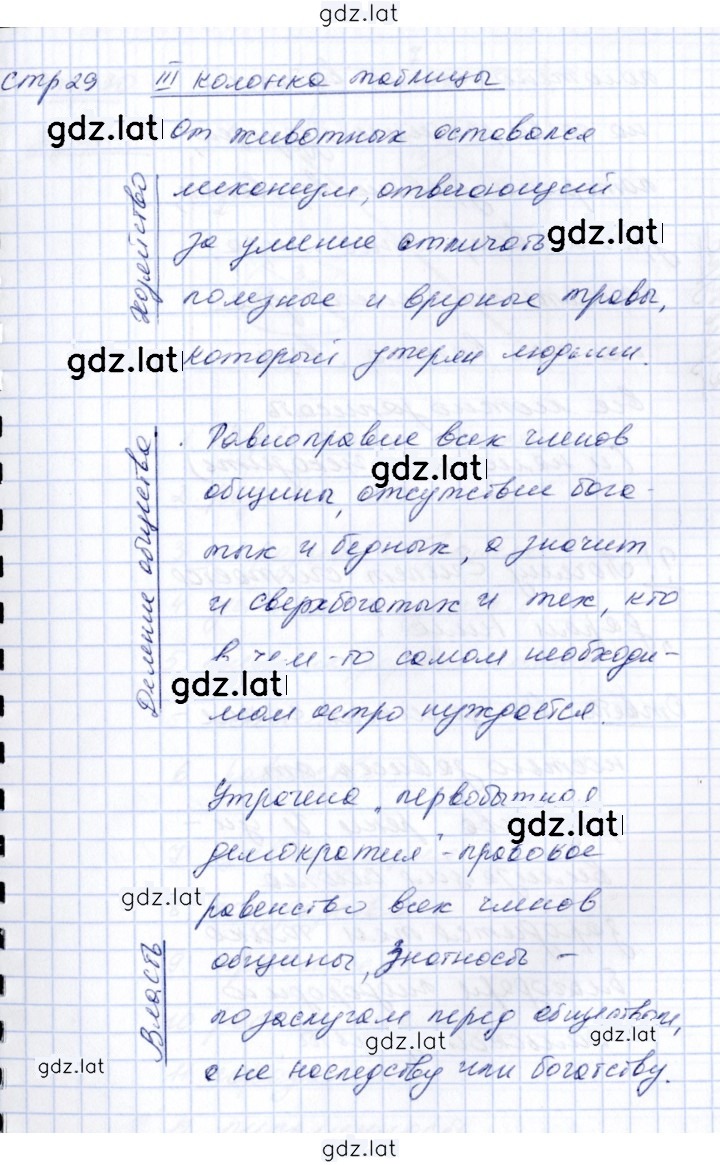 gdz.lat
стр 29 III колонка таблицы
gdz.lat От животных оставался
Хозяйство
механизм, отвечающий
за умение отличать gdz.lat
полезные и вредные травы,
gdz.lat который утерян людьми.
Деление общества
Равноправие всех членов
gdz.lat
общины, отсутствие бога-
тых и бедных, а значит
и сверхбогатых и тех, кто
в чем-то самом необходи-
gdz.lat
мом остро нуждается.
Власть
Утрачена "первобытная
gdz.lat
демократия" - правовое
gdz.lat
равенство всех членов
общины, Знатность -
по заслугам перед обществом,
gdz.lat gdz.lat
а не наследству или богатству.
gdz.lat
gdz.lat